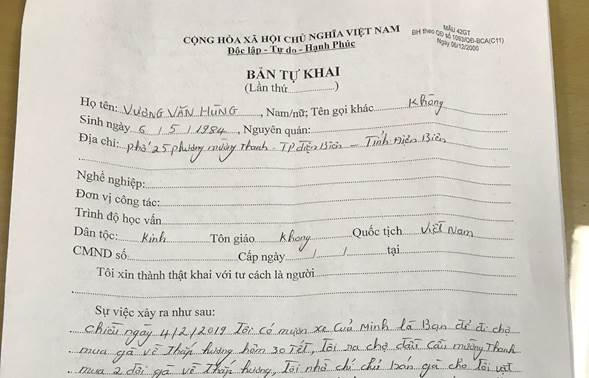 CỘNG HÒA XÃ HỘI CHỦ NGHĨA VIỆT NAM
Độc lập - Tự do - Hạnh Phúc
MẪU 42GT
BH theo QĐ số 1093/QĐ-BCA(C11)
Ngày 06/12/2000
BẢN TỰ KHAI
(Lần thứ..............)
Họ tên: VƯƠNG VĂN HÙNG, Nam/nữ; Tên gọi khác Không
Sinh ngày 6 / 5 / 1984, Nguyên quán:
Địa chỉ: phố 25 phường mường Thanh - TP điện Biên - Tỉnh Điện Biên
Nghề nghiệp:
Đơn vị công tác:
Trình độ học vấn
Dân tộc: Kinh Tôn giáo Không Quốc tịch Việt Nam
CMND số Cấp ngày / / tại
Tôi xin thành thật khai với tư cách là người
Sự việc xảy ra như sau:
chiều ngày 4/2/2019 Tôi có mượn xe Của Minh là Bạn để đi chợ
mua gà về Thắp hương hôm 30 Tết, Tôi ra chợ đầu Cầu mường Thanh
mua 2 đôi gà về Thắp hương, Tôi nhờ chí chủ bán gà cho Tôi vặt